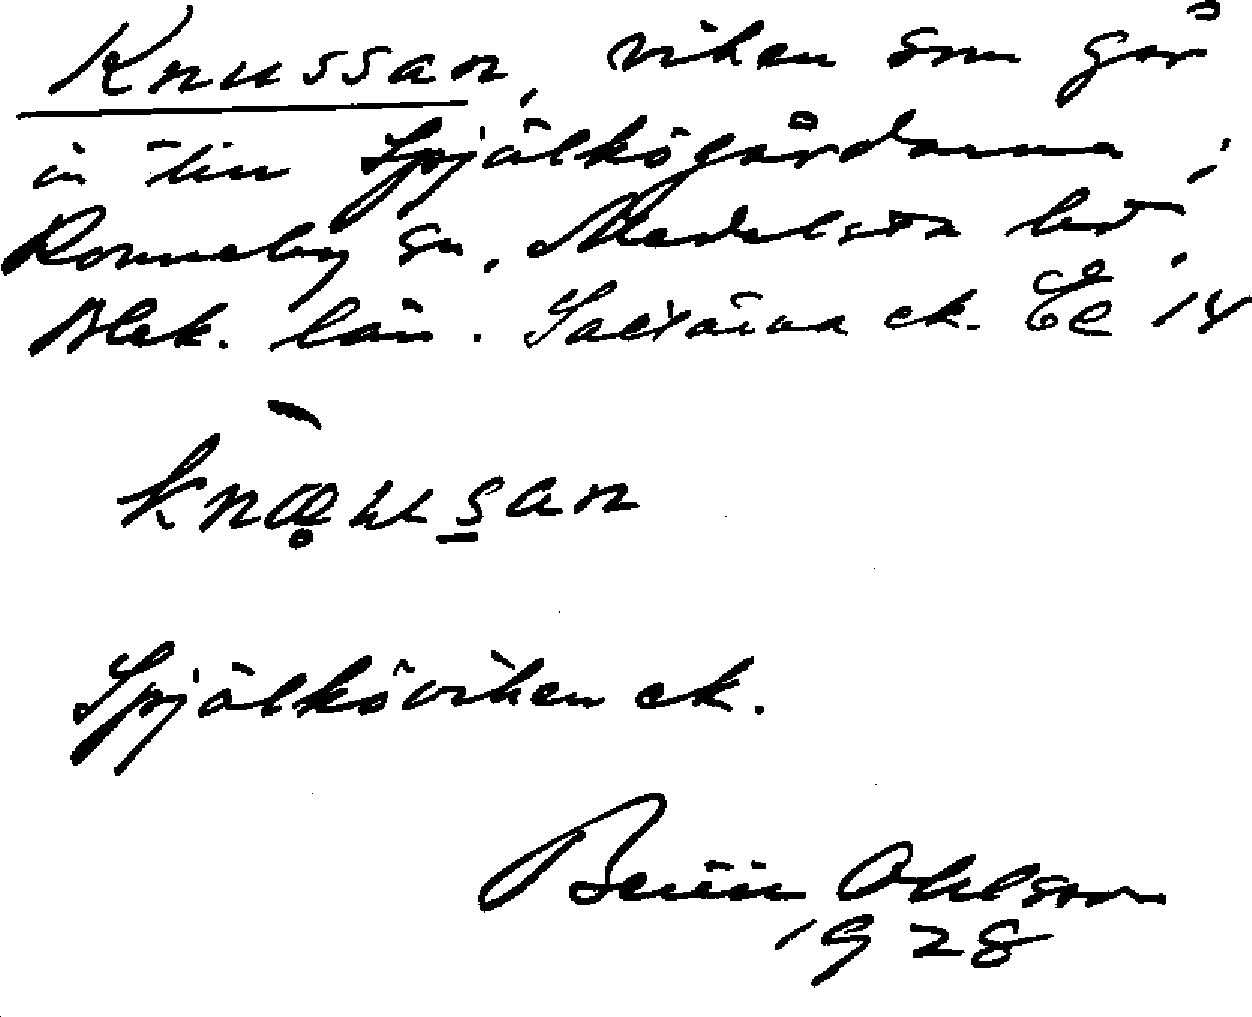 Knussan, viken som går
in till Spjälkögårdarna i
Ronneby sn, Medelsta hd,
Blek. län. Saltärna ek. 14
knæusan
Spjälköviken ek.
Bertil Ohlsson
1928